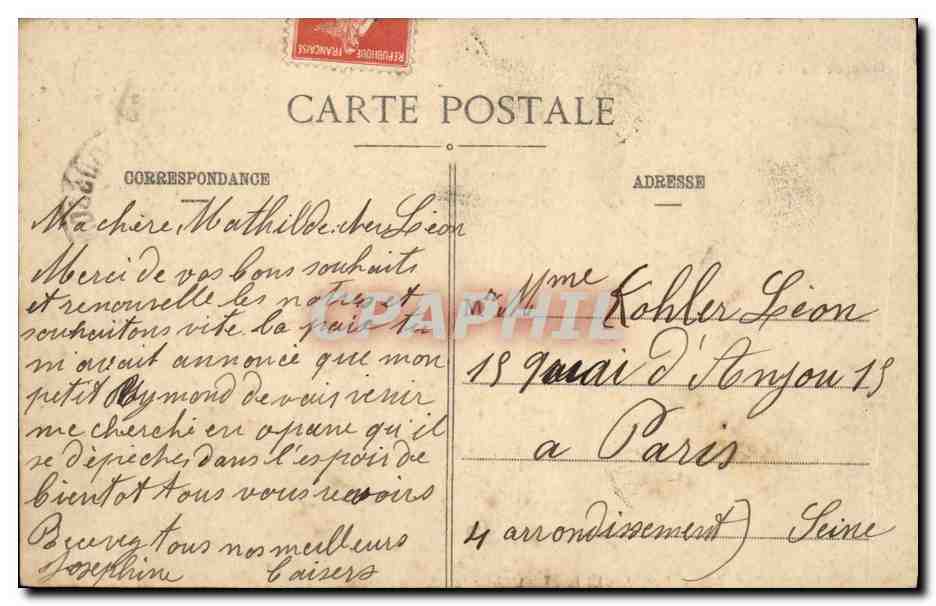 REPUBLIQUE FRANÇAISE
CARTE POSTALE
CORRESPONDANCE
ADRESSE
Ma chère Mathilde cher Léon
Merci de vos bons souhaits
et renouvelle les notres et
souhaitons vite la paix tu
m'avait annonce que mon
petit Raymond devais venir
me cherché en
qu'il
se dépeches dans l'espoir de
bientot tous vous revoirs
Recevez tous nos meilleurs
Josephine baisers
Mr Mme Kohler Léon
15 Quai d'Anjou 15
a Paris
4 arrondissement) Seine
CPAPHIL